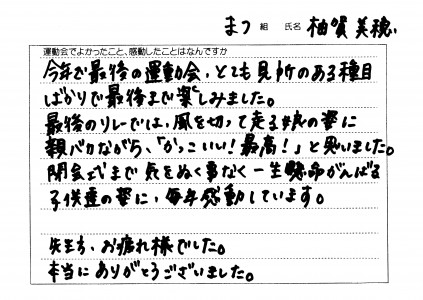 まつ 組 氏名 柚賀 美穂
運動会でよかったこと、感動したことはなんですか
今年で最後の運動会、とても見所のある種目
ばかりで最後まで楽しみました。
最後のリレーでは、風を切って走る娘の姿に
親バカながら、「かっこいい！最高！」と思いました。
閉会式まで気をぬく事なく一生懸命がんばる
子供達の姿に、毎年感動しています。
先生方、お疲れ様でした。
本当にありがとうございました。